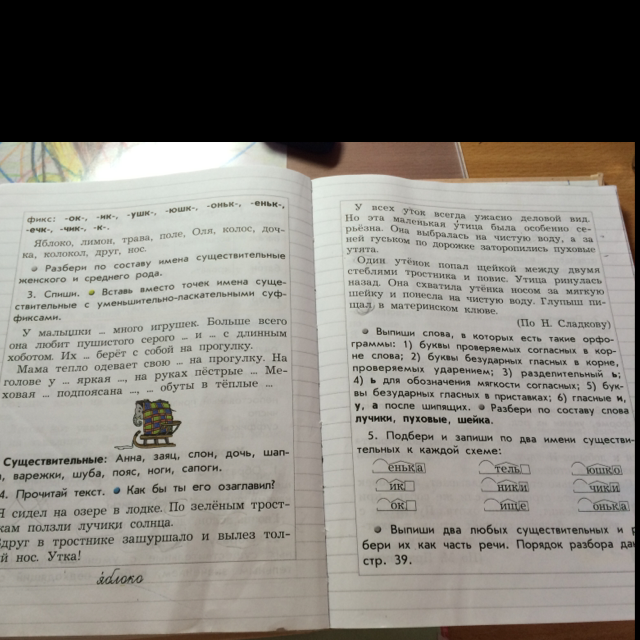 фикс: -ок-, -ик-, -ушк-, -юшк-, -оньк-, -еньк-,
-ечк-, -чик-, -к-.
Яблоко, лимон, трава, поле, Оля, колос, доч-
ка, колокол, друг, нос.
Разбери по составу имена существительные
женского и среднего рода.
3. Спиши. Вставь вместо точек имена суще-
ствительные с уменьшительно-ласкательными суф-
фиксами.
У малышки ... много игрушек. Больше всего
она любит пушистого серого ... и ... с длинным
хоботом. Их ... берёт с собой на прогулку.
Мама тепло одевает свою ... на прогулку. На
голове у ... яркая ..., на руках пёстрые ... Ме-
ховая ... подпоясана ..., ... обуты в тёплые ...
Существительные: Анна, заяц, слон, дочь, шап-
а, варежки, шуба, пояс, ноги, сапоги.
4. Прочитай текст. Как бы ты его озаглавил?
Я сидел на озере в лодке. По зелёным трост-
кам ползли лучики солнца.
Вдруг в тростнике зашуршало и вылез тол-
й нос. Утка!
яблоко
У всех уток всегда ужасно деловой вид.
Но эта маленькая утица была особенно се-
рьёзна. Она выбралась на чистую воду, а за
ней гуськом по дорожке заторопились пуховые
утята.
Один утёнок попал щейкой между двумя
стеблями тростника и повис. Утица ринулась
назад. Она схватила утёнка носом за мягкую
шейку и понесла на чистую воду. Глупыш пи-
щал в материнском клюве.
(По Н. Сладкову)
Выпиши слова, в которых есть такие орфо-
граммы: 1) буквы проверяемых согласных в кор-
не слова; 2) буквы безударных гласных в корне,
проверяемых ударением; 3) разделительный ь;
4) ь для обозначения мягкости согласных; 5) бук-
вы безударных гласных в приставках; 6) гласные и,
у, а после шипящих. Разбери по составу слова
лучики, пуховые, шейка.
5. Подбери и запиши по два имени существи-
тельных к каждой схеме:
енька тель юшко
ик ники чики
ок ище онька
Выпиши два любых существительных и р
бери их как часть речи. Порядок разбора дан
стр. 39.